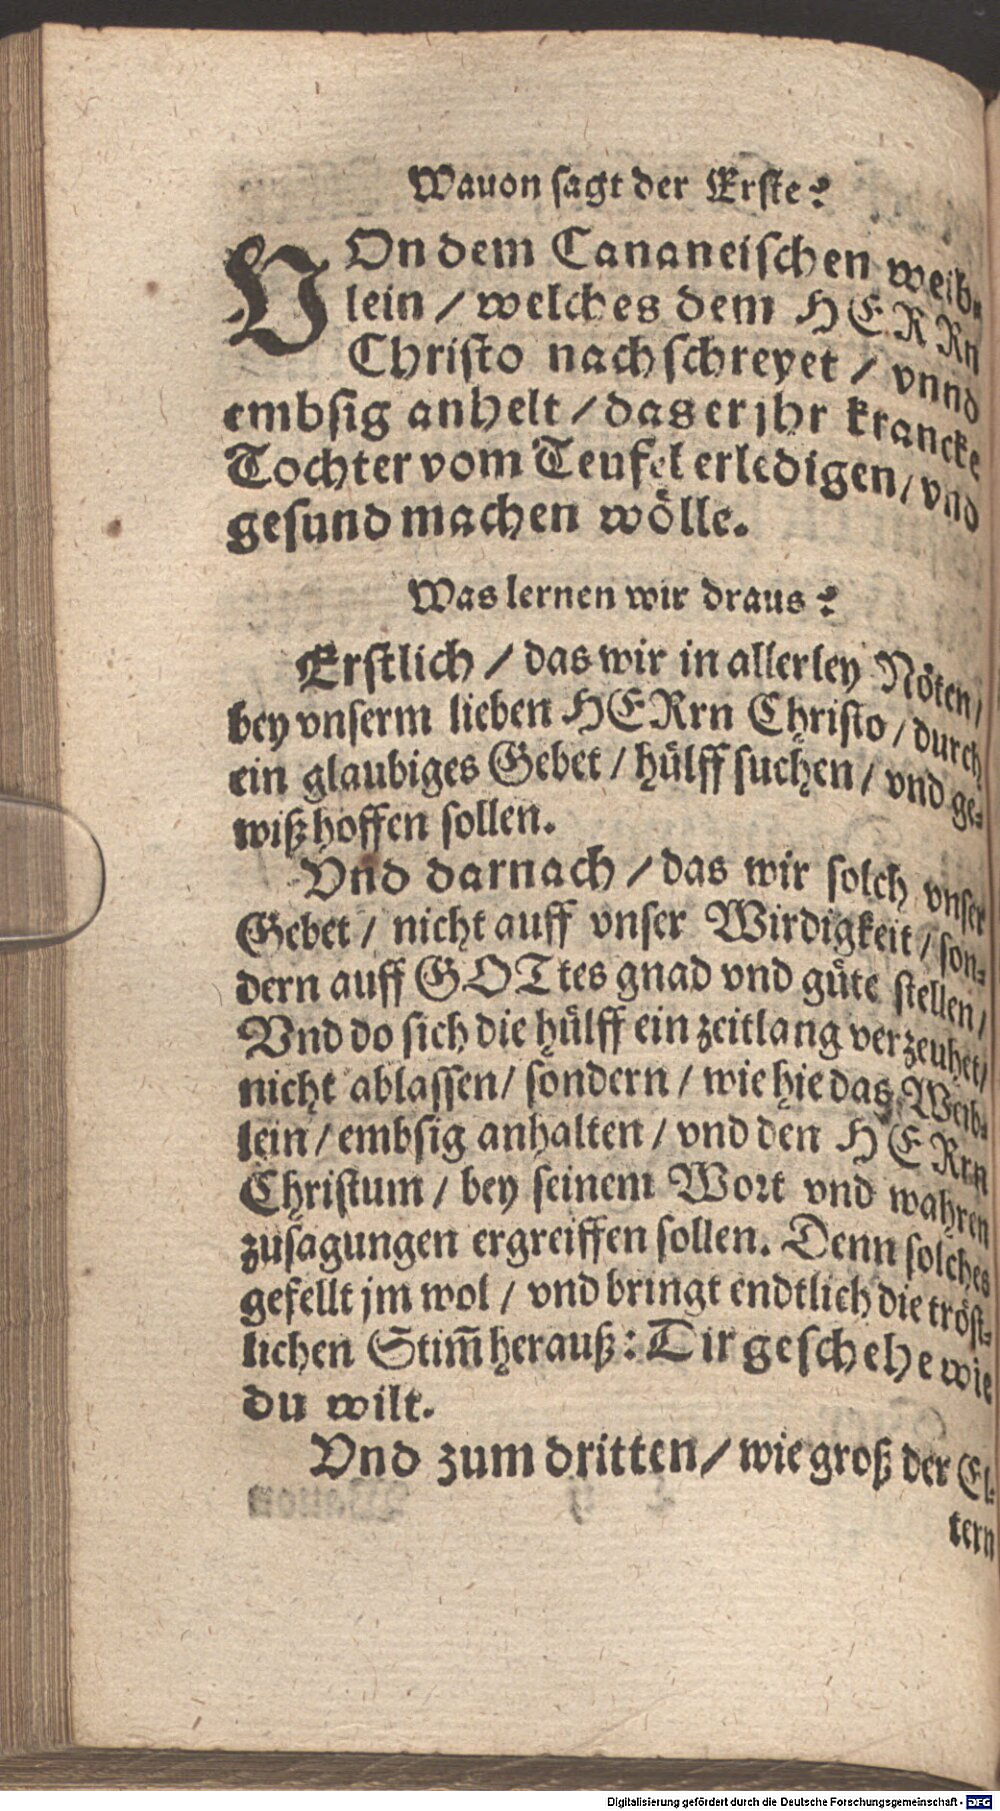 Wauon sagt der Erste?
VOn dem Cananeischen weib-
lein / welches dem HERRn
Christo nachschreyet / vnnd
embsig anhelt / das er jhr krancke
Tochter vom Teufel erledigen / vnd
gesund machen wölle.
Was lernen wir draus?
Erstlich / das wir in allerley Nöten /
bey vnserm lieben HERrn Christo / durch
ein glaubiges Gebet / hülff suchen / vnd ge-
wiß hoffen sollen.
Vnd darnach / das wir solch vnser
Gebet / nicht auff vnser Wirdigkeit / son-
dern auff GOTtes gnad vnd güte stellen /
Vnd do sich die hülff ein zeitlang verzeuhet /
nicht ablassen / sondern / wie hie das Weib-
lein / embsig anhalten / vnd den HERrn
Christum / bey seinem Wort vnd wahren
zusagungen ergreiffen sollen. Denn solches
gefellt jm wol / vnd bringt endtlich die tröst-
lichen Stim̃ herauß: Dir geschehe wie
du wilt.
Vnd zum dritten / wie groß der El-
tern
Digitalisierung gefördert durch die Deutsche Forschungsgemeinschaft - DFG